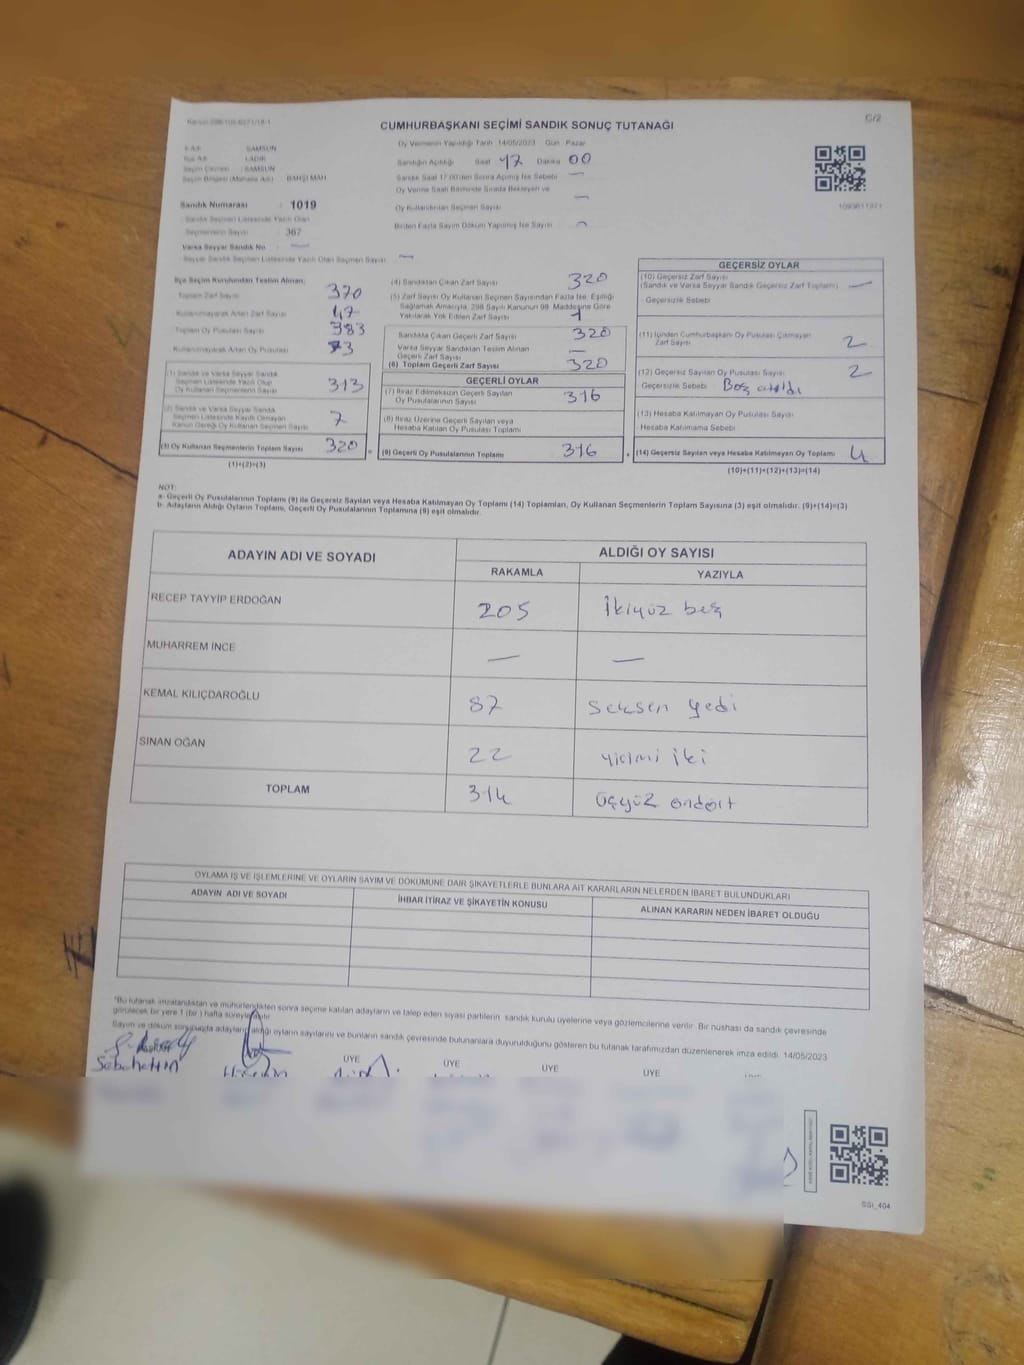 C/2
CUMHURBAŞKANI SEÇİMİ SANDIK SONUÇ TUTANAĞI
Oy Vermenin Yapıldığı Tarih 14/05/2023 Gün Pazar
SAMSUN
LADİK
SAMSUN
Sandığın Açıldığı Saat 17 Dakika 00
Sandık Saat 17:00'den Sonra Açılmış İse Sebebi —
Oy Verme Saati Bitiminde Sırada Bekleyen ve
Oy Kullandırılan Seçmen Sayısı —
Birden Fazla Sayım Döküm Yapılmış İse Sayısı —
Sandık Numarası : 1019
Sandık Seçmen Listesinde Yazılı Olan
Seçmenlerin Sayısı 367
Varsa Seyyar Sandık No —
Seyyar Sandık Seçmen Listesinde Yazılı Olan Seçmen Sayısı —
İlçe Seçim Kurulundan Teslim Alınan;
Toplam Zarf Sayısı 370
Kullanılmayarak Artan Zarf Sayısı 47
Toplam Oy Pusulası Sayısı 383
Kullanılmayarak Artan Oy Pusulası
(1) Sandık ve Varsa Seyyar Sandık
Seçmen Listesinde Yazılı Olup
Oy Kullanan Seçmenlerin Sayısı 313
(2) Sandık ve Varsa Seyyar Sandık
Seçmen Listesinde Kayıtlı Olmayan
Kanun Gereği Oy Kullanan Seçmen Sayısı 7
(3) Oy Kullanan Seçmenlerin Toplam Sayısı 320
(1)+(2)=(3)
(4) Sandıktan Çıkan Zarf Sayısı 320
(5) Zarf Sayısı Oy Kullanan Seçmen Sayısından Fazla İse, Eşitliği
Sağlamak Amacıyla, 298 Sayılı Kanunun 98. Maddesine Göre
Yakılarak Yok Edilen Zarf Sayısı
Sandıkta Çıkan Geçerli Zarf Sayısı 320
Varsa Seyyar Sandıktan Teslim Alınan
Geçerli Zarf Sayısı —
(6) Toplam Geçerli Zarf Sayısı 320
GEÇERLİ OYLAR
(7) İtiraz Edilmeksizin Geçerli Sayılan
Oy Pusulalarının Sayısı 316
(8) İtiraz Üzerine Geçerli Sayılan veya
Hesaba Katılan Oy Pusulası Toplamı
(9) Geçerli Oy Pusulalarının Toplamı 316
GEÇERSİZ OYLAR
(10) Geçersiz Zarf Sayısı
(Sandık ve Varsa Seyyar Sandık Geçersiz Zarf Toplamı) —
Geçersizlik Sebebi
(11) İçinden Cumhurbaşkanı Oy Pusulası Çıkmayan
Zarf Sayısı 2
(12) Geçersiz Sayılan Oy Pusulası Sayısı 2
Geçersizlik Sebebi : Boş atıldı
(13) Hesaba Katılmayan Oy Pusulası Sayısı
Hesaba Katılmama Sebebi
(14) Geçersiz Sayılan veya Hesaba Katılmayan Oy Toplamı 4
(10)+(11)+(12)+(13)=(14)
NOT:
a- Geçerli Oy Pusulalarının Toplamı (9) ile Geçersiz Sayılan veya Hesaba Katılmayan Oy Toplamı (14) Toplamları, Oy Kullanan Seçmenlerin Toplam Sayısına (3) eşit olmalıdır. (9)+(14)=(3)
b- Adayların Aldığı Oyların Toplamı, Geçerli Oy Pusulalarının Toplamına (9) eşit olmalıdır.
ADAYIN ADI VE SOYADI
ALDIĞI OY SAYISI
RAKAMLA YAZIYLA
RECEP TAYYİP ERDOĞAN 205 İkiyüz beş
MUHARREM İNCE — —
KEMAL KILIÇDAROĞLU 87 Seksen yedi
SİNAN OĞAN 22 yirmi iki
TOPLAM 314 Üçyüz ondört
OYLAMA İŞ VE İŞLEMLERİNE VE OYLARIN SAYIM VE DÖKÜMÜNE DAİR ŞİKAYETLERLE BUNLARA AİT KARARLARIN NELERDEN İBARET BULUNDUKLARI
ADAYIN ADI VE SOYADI İHBAR İTİRAZ VE ŞİKAYETİN KONUSU ALINAN KARARIN NEDEN İBARET OLDUĞU
"Bu tutanak imzalandıktan ve mühürlendikten sonra seçime katılan adayların ve talep eden siyasi partilerin sandık kurulu üyelerine veya gözlemcilerine verilir. Bir nüshası da sandık çevresinde
görülecek bir yere 1 (bir) hafta süreyle asılır.
Sayım ve döküm sonucunda adayların aldığı oyların sayılarını ve bunların sandık çevresinde bulunanlara duyurulduğunu gösteren bu tutanak tarafımızdan düzenlenerek imza edildi. 14/05/2023
ÜYE ÜYE ÜYE ÜYE
Sabahattin
SSİ_404